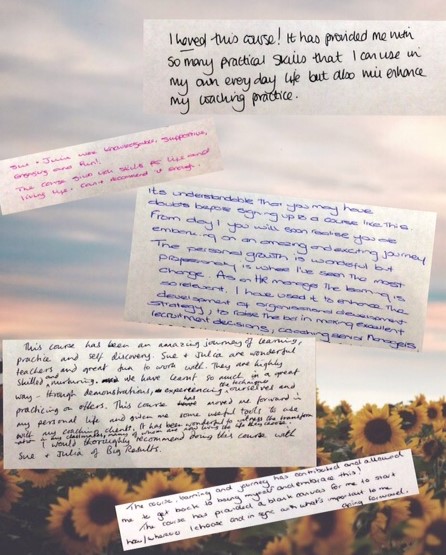 I loved this course! It has provided me with
so many practical skills that I can use in
my own everyday life but also will enhance
my coaching practice.
Sue + Julia were knowledgeable, supportive,
engaging and fun!
The course gives you skills for life and
living life. Can't recommend it enough.
Its understandable that you may have
doubts before signing up to a course like this.
From day 1 you will soon realise you are
embarking on an amazing and exciting journey
The personal growth is wonderful but
professionally is where I've seen the most
change. As an HR manager the learning is
so relevant. I have used it to enhance the
development of organisational development
strategy, to raise the bar in making excellent
recruitment decisions, coaching senior Managers
This course has been an amazing journey of learning,
practice and self discovery. Sue & Julia are wonderful
teachers and great fun to work with. They are highly
skilled, nurturing, we have learnt so much in a great
way - through demonstrations, experiencing ourselves and
the techniques
practicing on others. This course has moved me forward in
my personal life and given me some useful tools to use
with my coaching clients. It has been wonderful to witness the transform
in my classmates, many of whom are now living the life they choose.
I would thoroughly recommend doing this course with
Sue & Julia of Big Results.
The course, learning and journey has contributed and allowed
me to get back to being myself and embrace this!
The course has provided a blank canvas for me to start
how/whatever I choose and in sync with what's important to me
going forward.